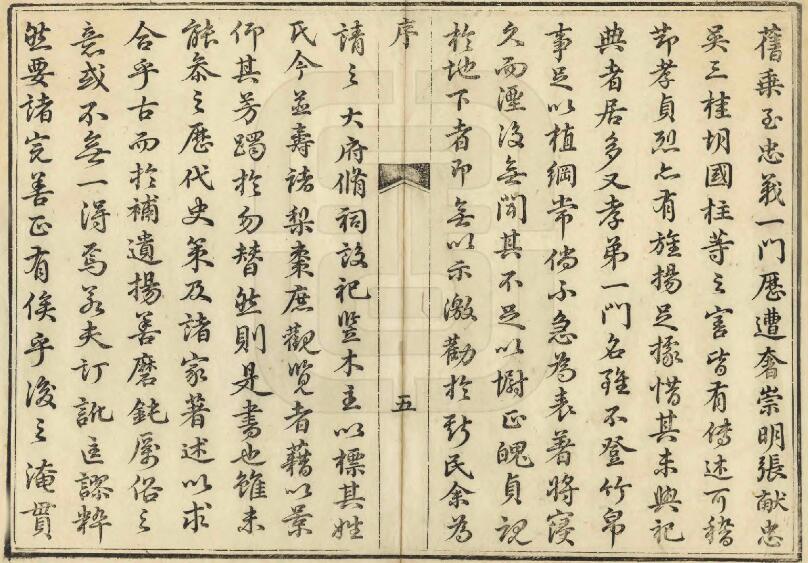 舊乘至忠義一門歷遭奢崇明張獻忠
吳三桂胡國柱等之害皆有傳述可稽
節孝貞烈亦有旌揚足據惜其未與祀
典者居多又孝弟一門名雖不登竹帛
事足以植綱常倘不急為表著將寖
久而湮沒無聞其不足以正魄貞
於地下者即無以示激勸於斯民余為
序
五
請之大府脩祠設祀豎木主以標其姓
氏今並壽諸梨棗庶觀覽者藉以景
仰其芳躅於勿替然則是書也雖未
能參之歷代史策及諸家著述以求
合乎古而於補遺揚善磨鈍厲俗之
意或不無一得焉若夫訂訛匡謬粹
然要諸完善正有俟乎後之淹貫